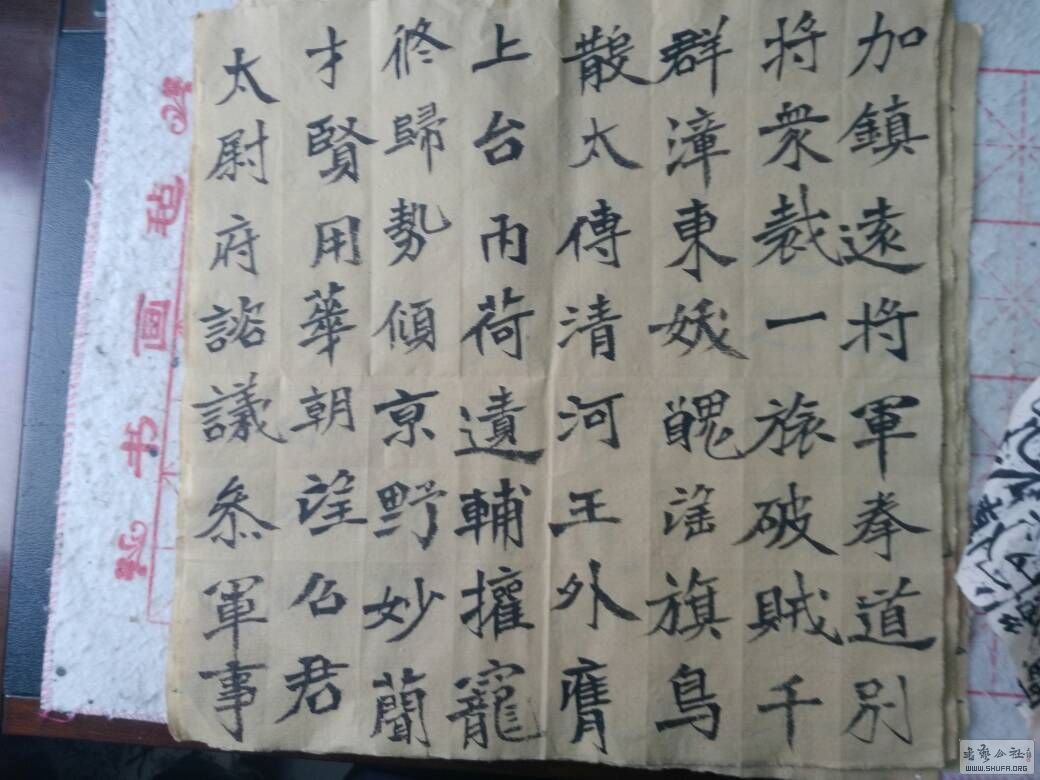 加鎮遠将軍拳道別
将衆裁一旅破賊千
群漳東妖醜謡旗鳥
散太傅清河王外膺
上台内荷遺輔擢寵
歸勢傾亰野妙蕳
才賢用華朝望召君
太尉府諮議叅軍事
书画毡
书艺公社
WWW.SHUFA.ORG